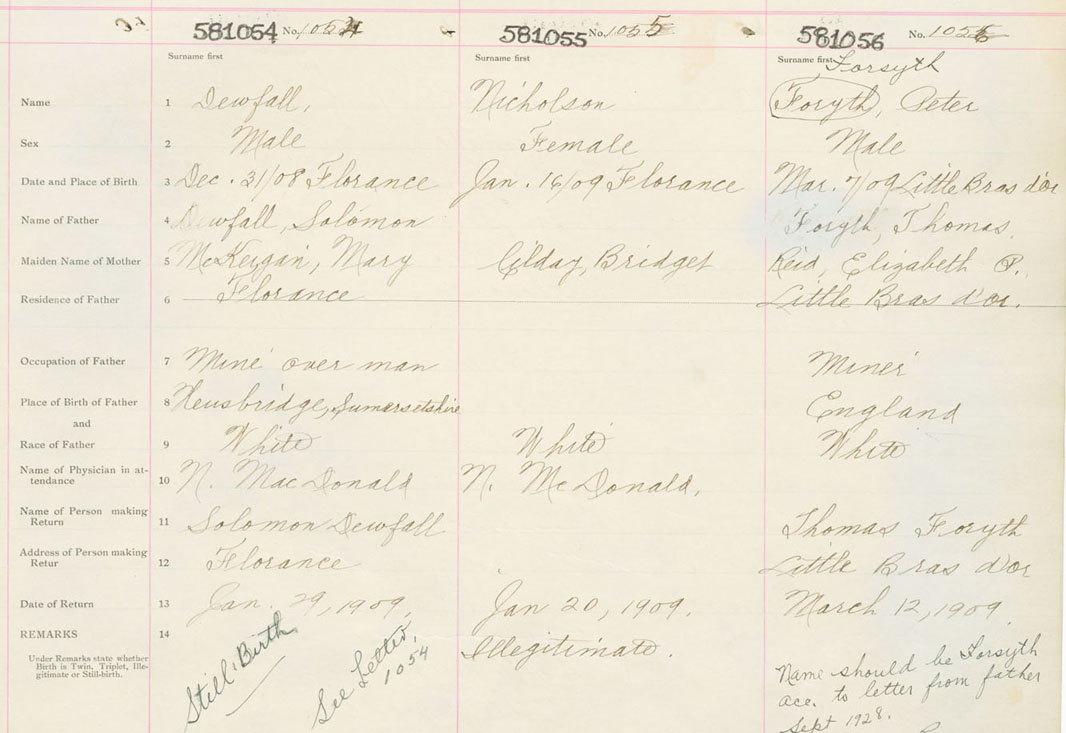 581054 No. 1054 581055 No. 1055 581056 No. 1056
Surname first Surname first Surname first Forsyth
Name 1 Dewfall, Nicholson Foryth, Peter
Sex 2 Male Female Male
Date and Place of Birth 3 Dec. 31/08 Florance Jan. 16/09 Florance Mar. 7/09 Little Bras d'or
Name of Father 4 Dewfall, Solomon Foryth, Thomas.
Maiden Name of Mother 5 McKeigan, Mary Gilday, Bridget Reid, Elizabeth P.
Residence of Father 6 Florance Little Bras d'or.
Occupation of Father 7 Mine over man Miner
Place of Birth of Father 8 Sumersetshire England
and
Race of Father 9 White White White
Name of Physician in at-
tendance 10 N. MacDonald N. McDonald,
Name of Person making
Return 11 Solomon Dewfall Thomas Foryth
Address of Person making
Retur 12 Florance Little Bras d'or
Date of Return 13 Jan. 29, 1909, Jan 20, 1909. March 12, 1909
REMARKS 14 Illegitimate.
Under Remarks state whether
Birth is Twin, Triplet, Ille-
gitimate or Still-birth.
Still Birth
See Letter,
1054
Name should be Forsyth
acc. to letter from father
Sept 1928.